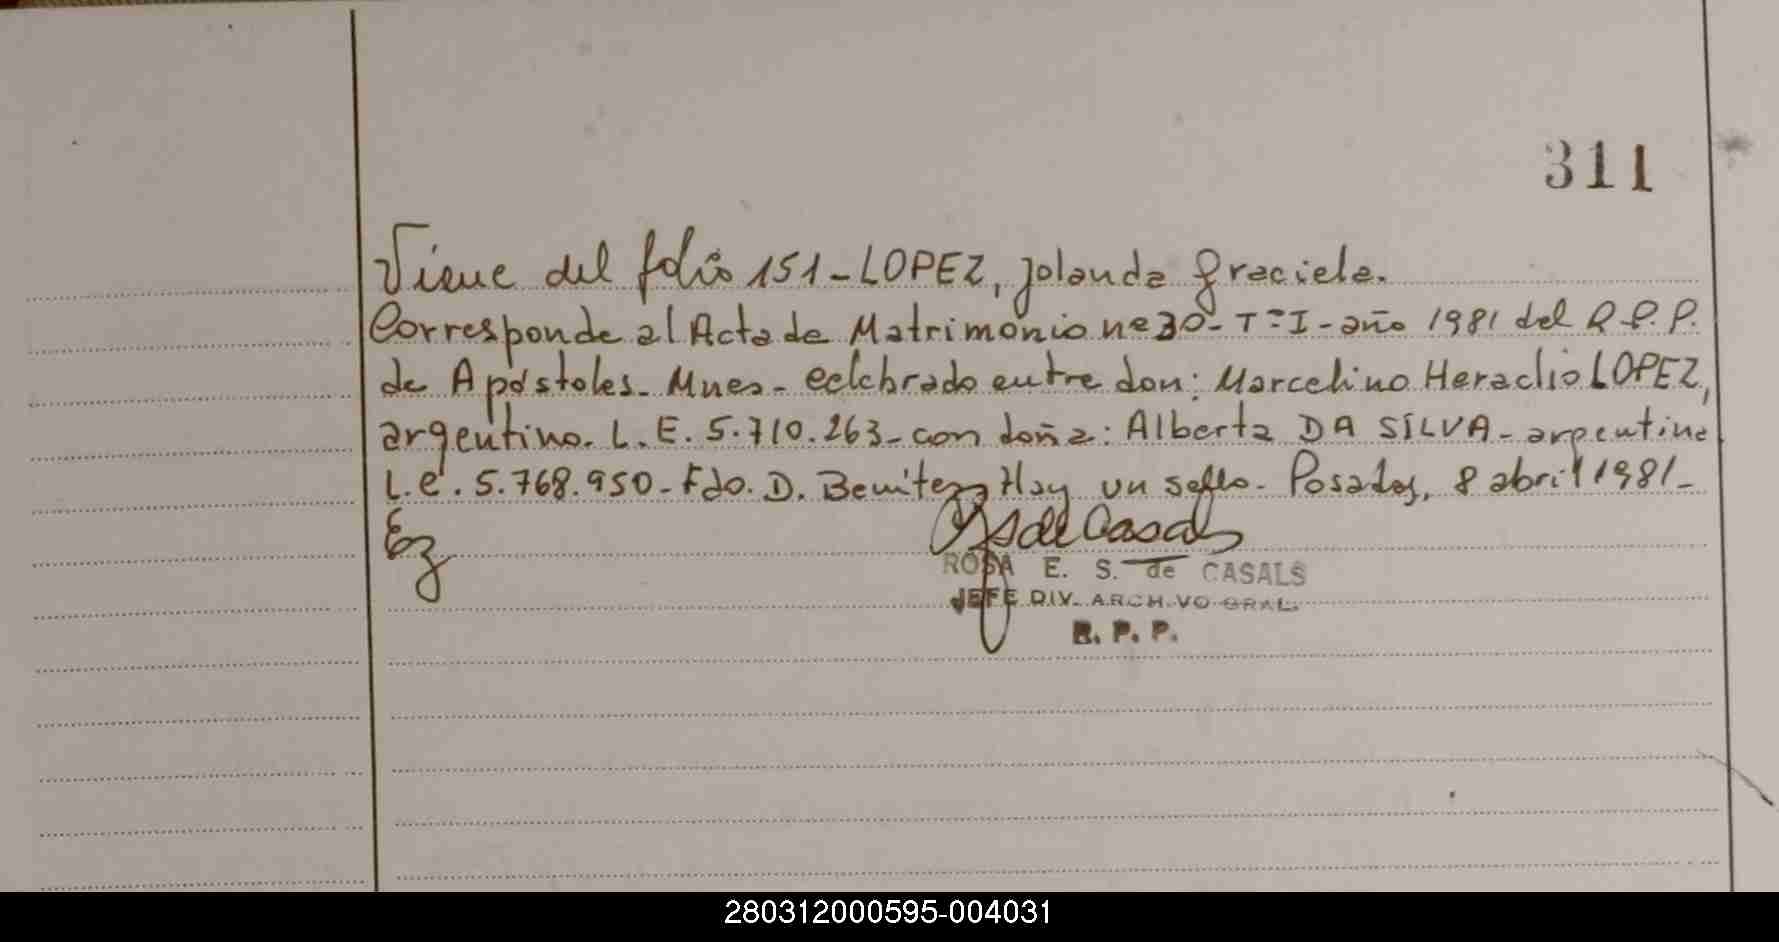 311
Viene del folio 151-LOPEZ, Jolanda Graciela.
Corresponde al Acta de Matrimonio nº 30-Tº I-año 1981 del R.P.P.
de Apóstoles-Mnes-celebrado entre don: Marcelino Heraclio LOPEZ,
argentino. L.E. 5.710.263-con doña: Alberta DA SILVA-argentina
L.C. 5.768.950-Fdo. D. Benitez Hay un sello-Posadas, 8 abril 1981-
Ez
ROSA E. S. de CASALS
JEFE DIV. ARCHIVO GRAL.
R. P. P.
280312000595-004031